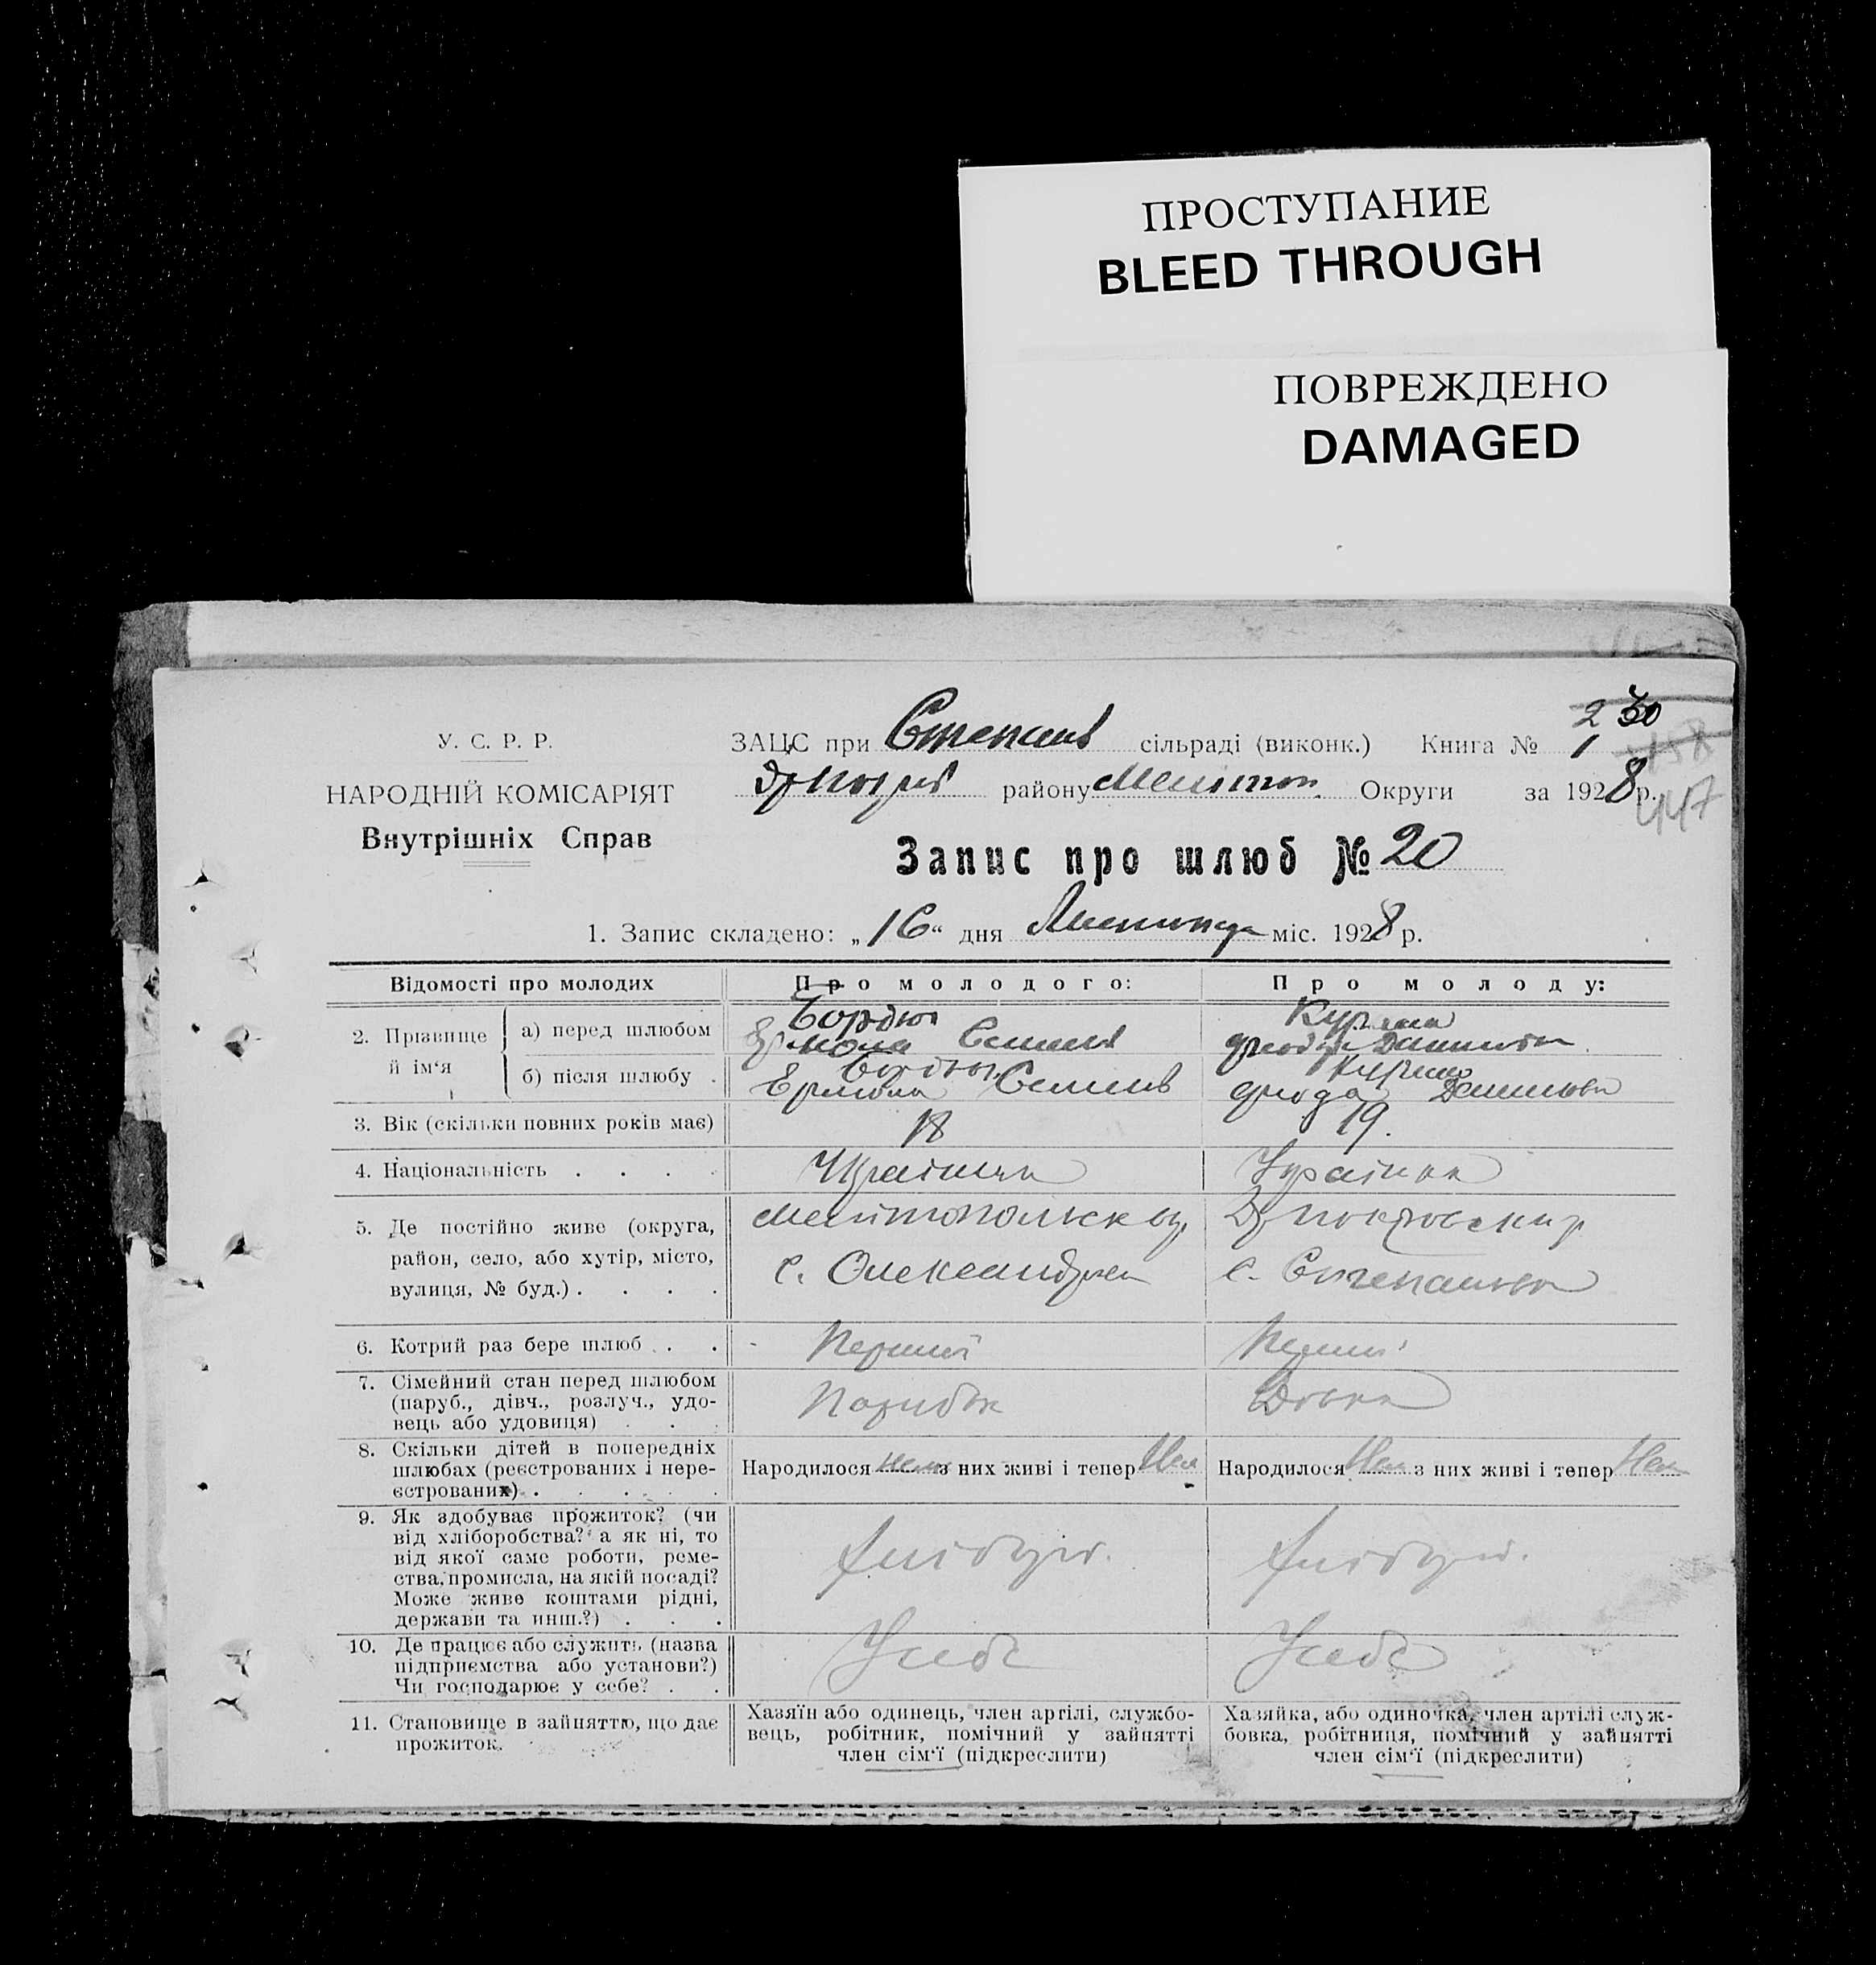 ПРОСТУПАНИЕ
BLEED THROUGH
ПОВРЕЖДЕНО
DAMAGED
2 30
У. С. Р. Р.
ЗАЦС при Степанів сільраді (виконк.) Книга № 1
НАРОДНІЙ КОМІСАРІЯТ
району Мелітоп. Округи за 1928 р.
447
Внутрішніх Справ
Запис про шлюб № 20
1. Запис складено: „16“ дня Листопада міс. 1928 р.
Відомості про молодих
Про молодого:
Про молоду:
2. Прізвище й ім‘я
а) перед шлюбом
Семенів
б) після шлюбу .
Семенів
3. Вік (скільки повних років має)
18
19.
4. Національність . . . .
Українка
5. Де постійно живе (округа,
район, село, або хутір, місто,
вулиця, № буд.) . . . .
с.
с. Степанівка
6. Котрий раз бере шлюб . .
Перший
7. Сімейний стан перед шлюбом
(паруб., дівч., розлуч., удо-
вець або удовиця) . . .
8. Скільки дітей в попередніх
шлюбах (реєстрованих і нере-
єстрованих) . . . . .
Народилося нема з них живі і тепер Нем
Народилося Нем з них живі і тепер Нем
9. Як здобуває прожиток? (чи
від хліборобства? а як ні, то
від якої саме роботи, реме-
ства, промисла, на якій посаді?
Може живе коштами рідні,
держави та инш.?) . . .
10. Де працює або служить (назва
підприємства або установи?)
Чи господарює у себе? . .
У себе
У себе
11. Становище в зайняттю, що дає
прожиток.
Хазяїн або одинець, член артілі, службо-
вець, робітник, помічний у зайнятті
член сім‘ї (підкреслити)
Хазяйка, або одиночка, член артілі служ-
бовка, робітниця, помічний у зайнятті
член сім‘ї (підкреслити)